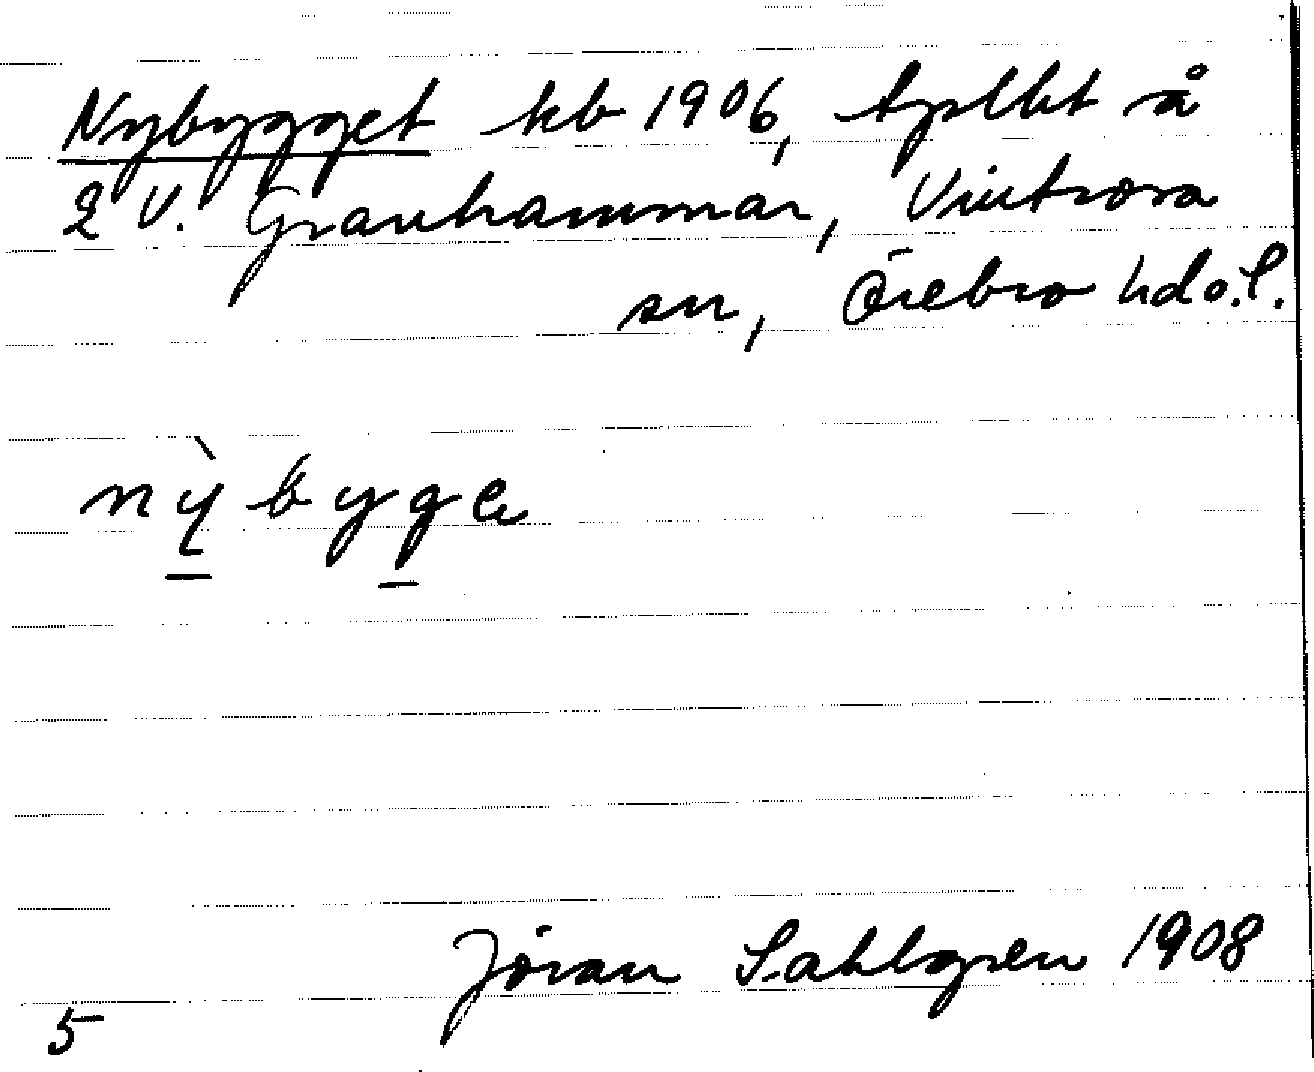 Nybygget kb 1906, tplht å
2 V. Granhammar, Vintrosa
sn, Örebro hd o. l.
nỳbyge
Jöran Sahlgren 1908
5